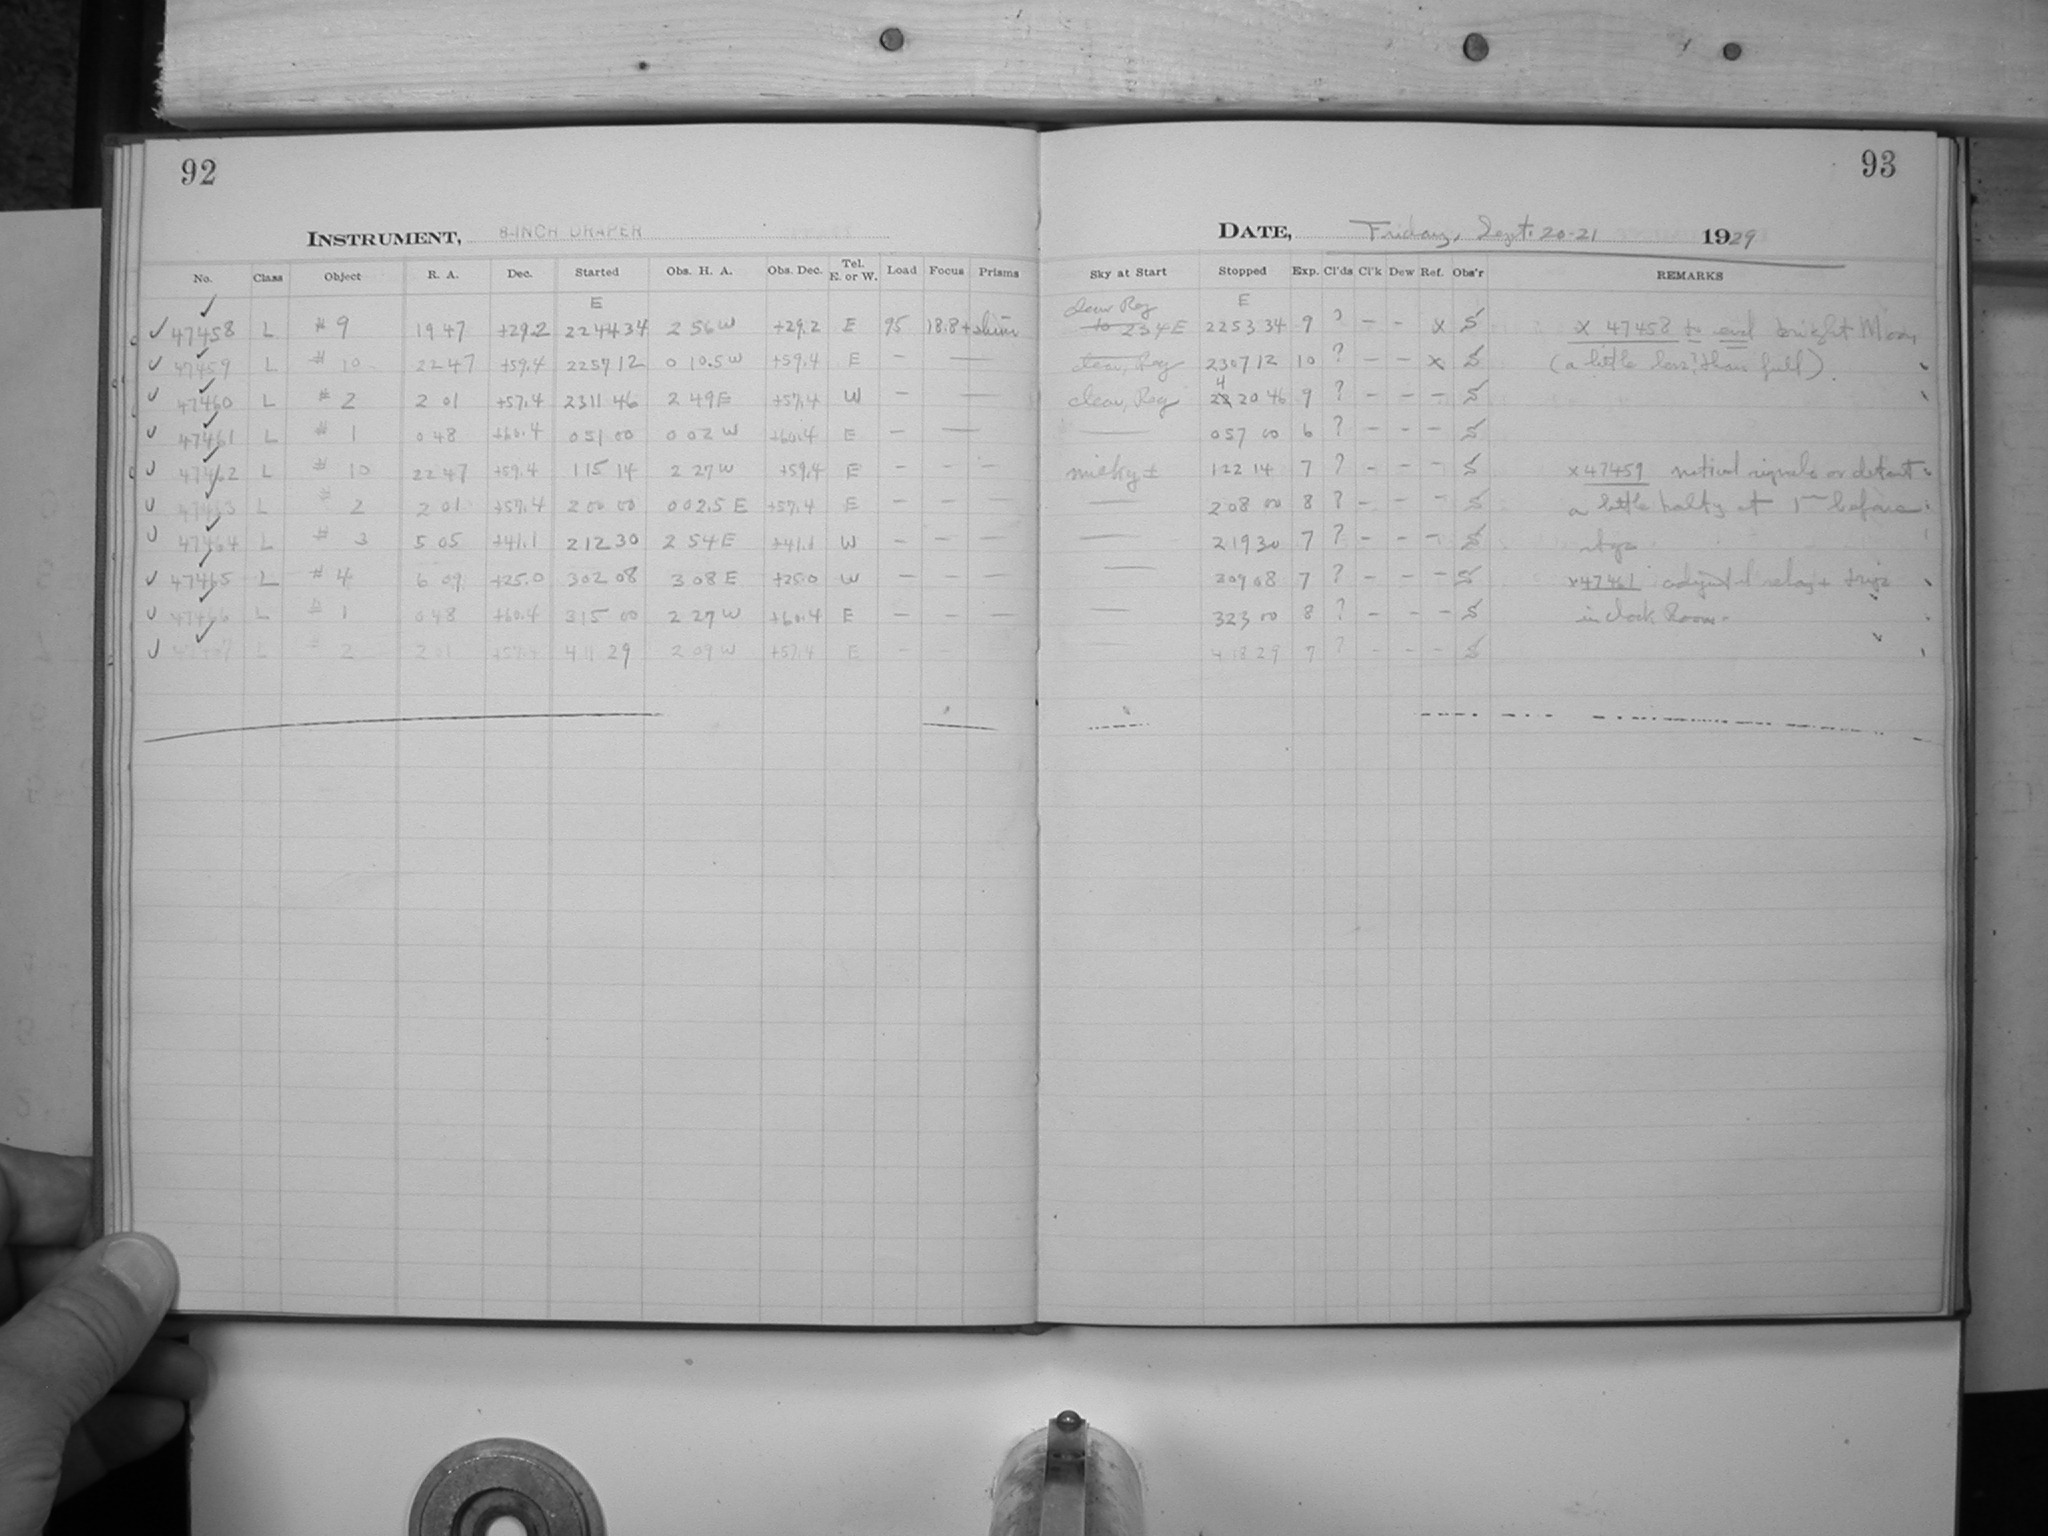 92
93
INSTRUMENT, 8-INCH DRAPER
DATE, Friday, Sept. 20-21 1929
No. Class Object R. A. Dec. Started Obs. H. A. Obs. Dec. Tel. E. or W. Load Focus Prisms Sky at Start Stopped Exp. Cl'ds Cl'k Dew Ref. Obs'r REMARKS
E clear Reg E
47458 L # 9 19 47 +29.2 22 44 34 2 56 W +29.2 E 95 18.8+ to 2 34 E 22 53 34 9 ? – – x S x 47458 to end bright Moon
47459 L # 10 22 47 +59.4 22 57 12 0 10.5 W +59.4 E – — clear, Reg 23 07 12 10 ? – – x S (a little less? than full).
47460 L # 2 2 01 +57.4 23 11 46 2 49 E +57.4 W – — clear, Reg 4 22 20 46 9 ? – – – S
47461 L # 1 0 48 +60.4 0 51 00 0 02 W +60.4 E – — — 0 57 00 6 ? – – – S
47462 L # 10 22 47 +59.4 1 15 14 2 27 W +59.4 E – – – milky ± 1 22 14 7 ? – – – S x 47459 noticed signals or detent
47463 L # 2 2 01 +57.4 2 00 00 0 02.5 E +57.4 E – – – — 2 08 00 8 ? – – – S a little halty at 1m before
47464 L # 3 5 05 +41.1 2 12 30 2 54 E +41.1 W – – – — 2 19 30 7 ? – – – S
47465 L # 4 6 09 +25.0 3 02 08 3 08 E +25.0 W – – – — 3 09 08 7 ? – – – S x 47461 adjusted relay +
47466 L # 1 0 48 +60.4 3 15 00 2 27 W +60.4 E – – – — 3 23 00 8 ? – – – S in clock Room.
47467 L # 2 2 01 +57.4 4 11 29 2 09 W +57.4 E – – – — 4 18 29 7 ? – – – S